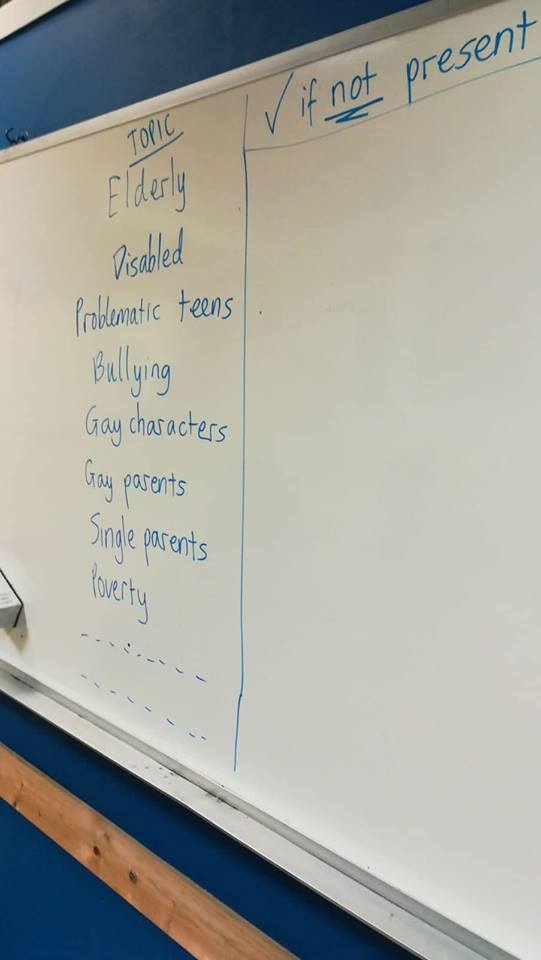 TOPIC
✓ if not present
Elderly
Disabled
Problematic teens
Bullying
Gay characters
Gay parents
Single parents
Poverty